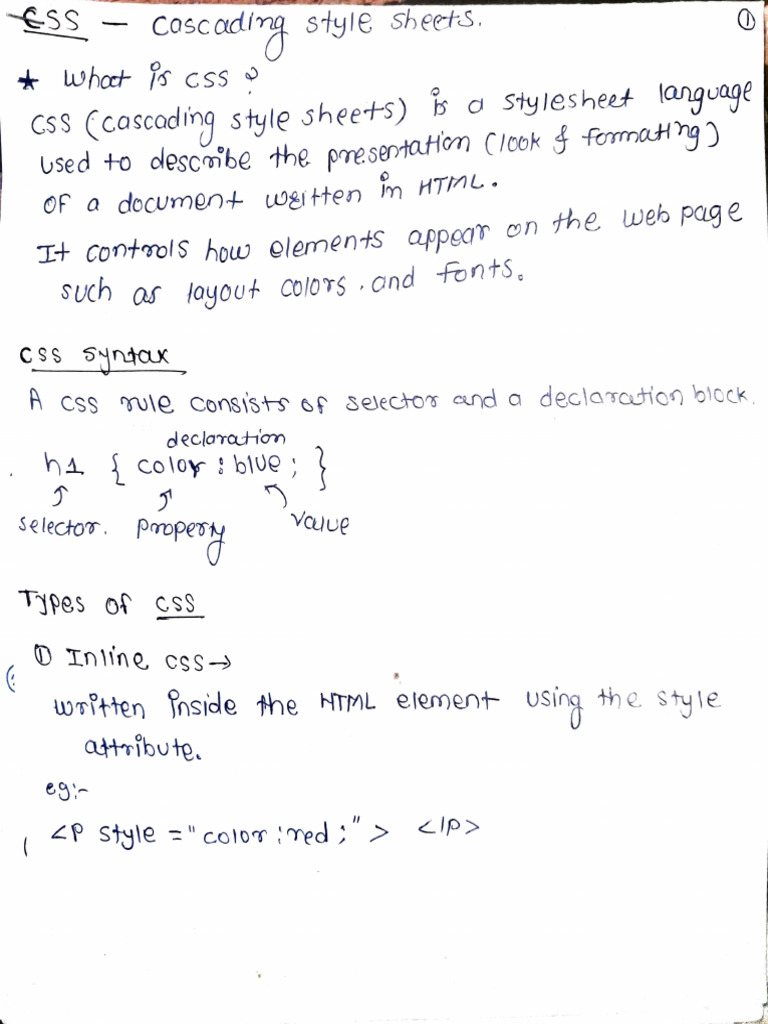 CSS — Cascading style sheets. ①
★ What is CSS ?
CSS (cascading style sheets) is a stylesheet language
used to describe the presentation (look & formating)
of a document written in HTML.
It controls how elements appear on the web page
such as layout colors, and fonts.
CSS Syntax
A CSS rule consists of selector and a declaration block.
declaration
h1 { color : blue ; }
selector. property value
Types of CSS
① Inline CSS→
written inside the HTML element using the style
attribute.
eg:-
<P style ="color:red;"> </P>